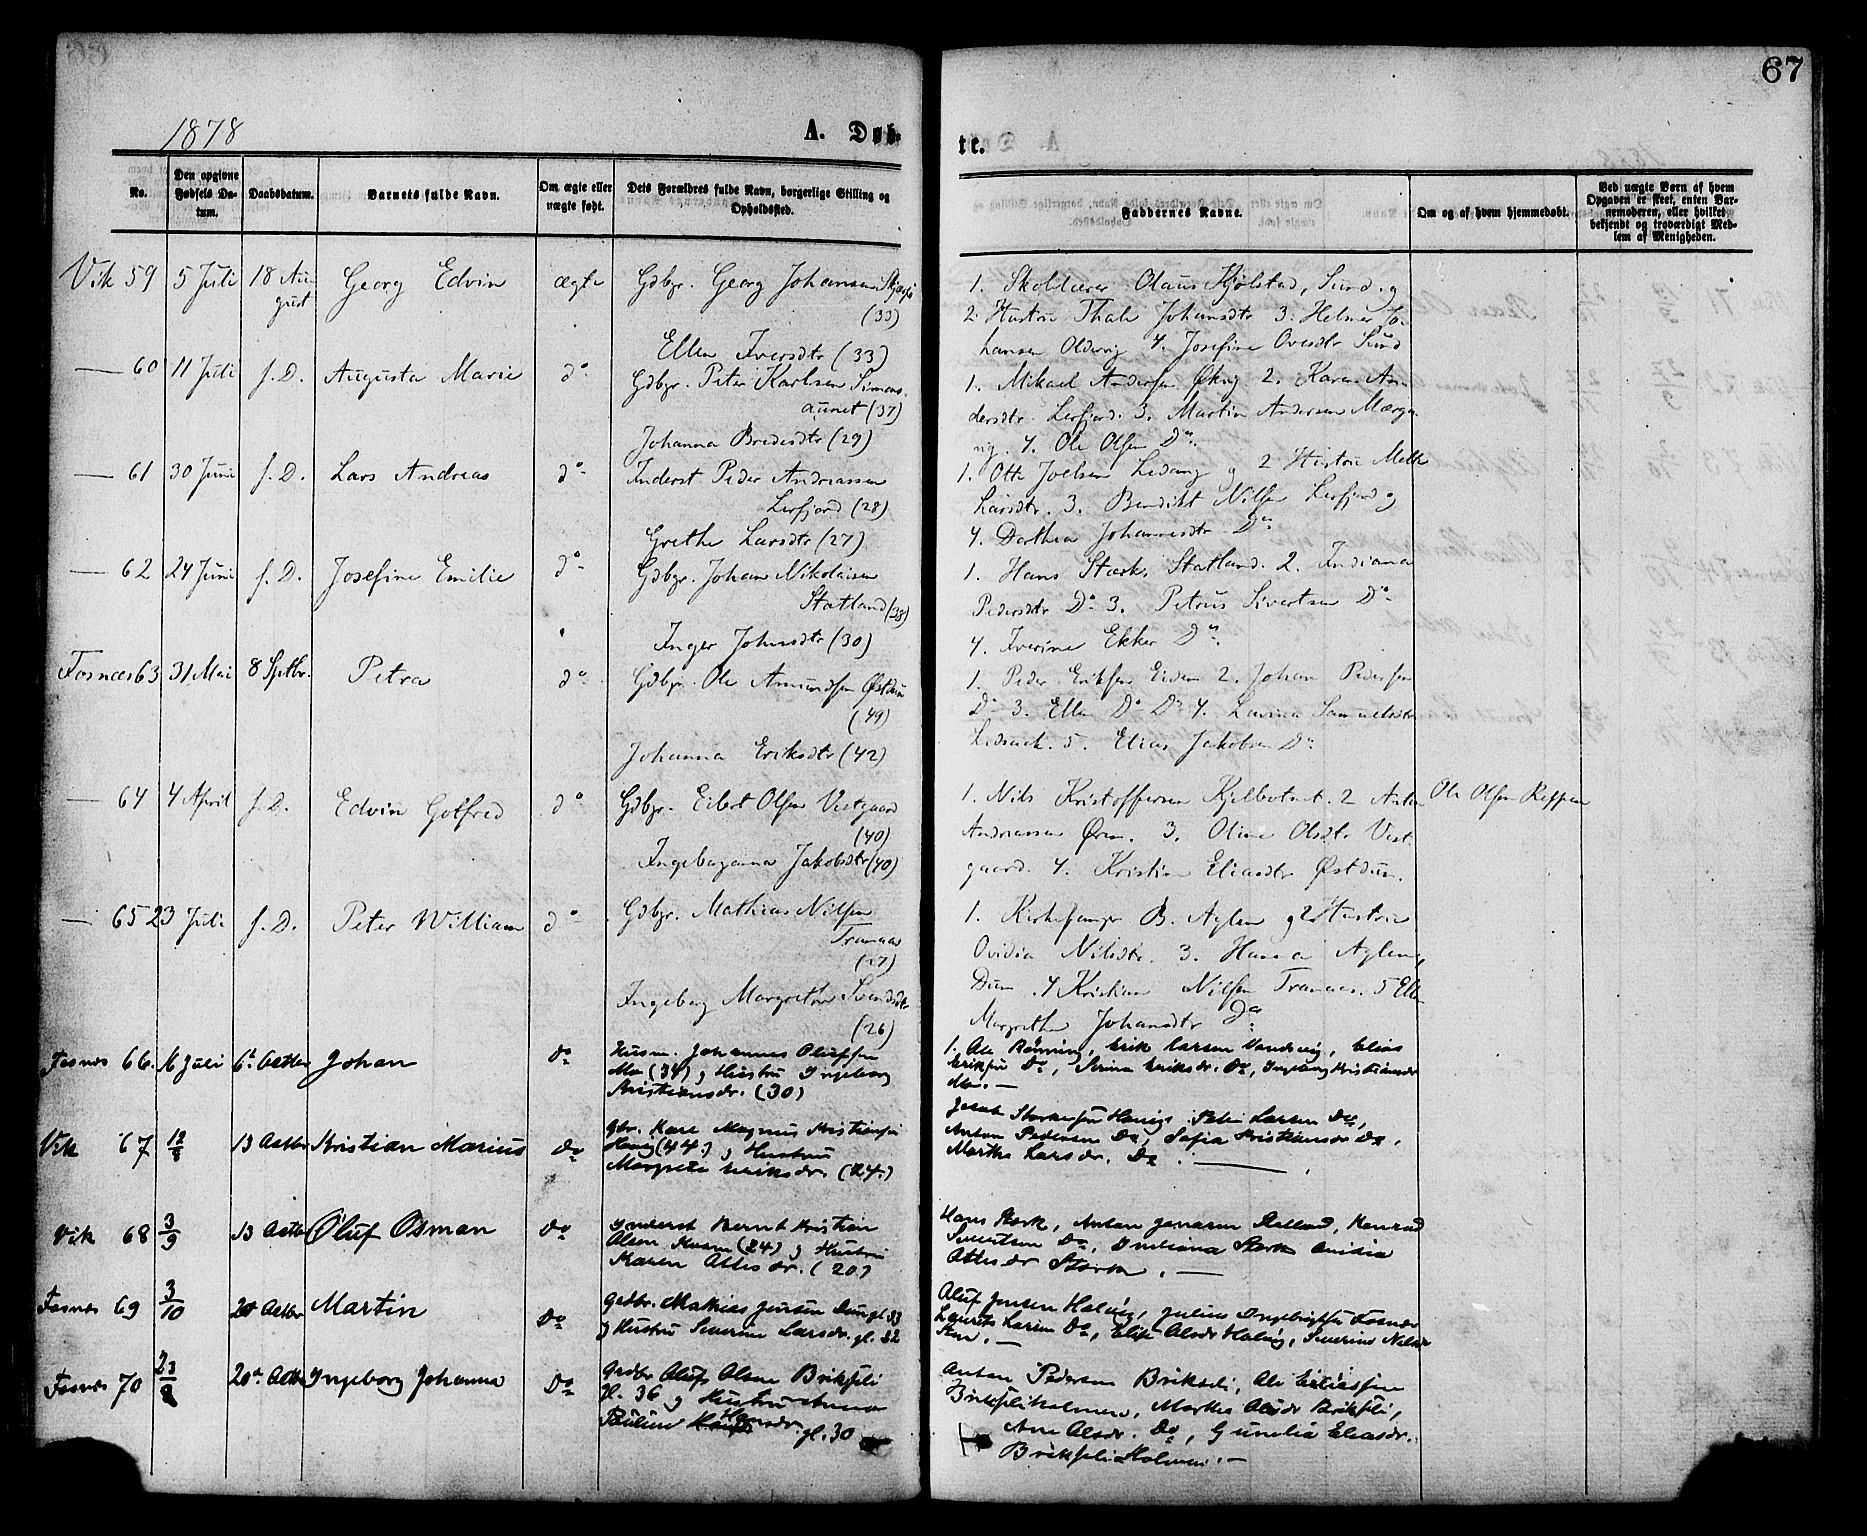 67
1878
A. Døb-
te.
No.
Den opgivne Fødsels Da-tum.
Daabsdatum.
Barnets fulde Navn.
Om ægte eller uægte født.
Dets Forældres fulde Navn, borgerlige Stilling og Opholdssted.
Faddernes Navne.
Om og af hvem hjemmedøbt.
Ved uægte Børn af hvem Opgaven er skeet, enten Bar-nemoderen, eller hvilket bekjendt og troværdigt Med-lem af Menigheden.
Vik 59 5 Juli 18 Au-gust Georg Edvin ægte Gdbgr. Georg Johansen
(33)
Ellen Iversdtr (33)
1. Skolelærer Olaus Kjølstad, Sund. og
2 Hustru Thale Johansdtr 3. Helmer Jo-
hansen Oldervig 4. Josefine Ovesdtr Sund
— 60 11 Juli f. D. Augusta Marie do Gdbgr. Peter Karlsen Simons-
aunet (37)
Johanna Bredesdtr (29)
1. Mikael Andersen Økvig 2. Karen An-
dersdtr Lerfjord. 3. Martin Andersen
vig. 4. Ole Olsen Do
— 61 30 Juni f. D. Lars Andreas do Inderst Peder Andreassen
Lerfjord (28)
Grethe Larsdtr (27)
1. Otte Joelsen Ledang og 2 Hustru Mette
Larsdtr. 3. Bendikt Nilsen Lerfjord og
4. Dorthea Johannesdtr Do
— 62 24 Juni f. D. Josefine Emilie do Gdbgr. Johan Nikolaisen
Statland (38)
Inger Johnsdtr (30)
1. Hans Stærk, Statland. 2. Indiana
Pedersdtr Do 3. Petrus Sivertsen Do
4. Iverine Ekker Do
Fosnæs 63 31 Mai 8 Sptbr. Petra do Gdbgr. Ole Amundsen Østduun
(49)
Johanna Eriksdtr (42)
1. Peder Eriksen Eiden 2. Johan Pedersen
Do 3. Ellen Do Do 4. Lavina Samuelsdtr
5. Elias Jakobsen Do
— 64 4 April f. D. Edvin Gotfred do Gdbgr. Eilert Olsen Vestgaard
(40)
Ingeborganna Jakobsdtr (40)
1. Nils Kristoffersen Kjelbotnet. 2 Anton
Andreassen Øren. 3. Oline Olsdtr Vest-
gaard. 4. Kristine Eliasdtr Østduun.
Ole Olsen Reppen
— 65 23 Juli f. D. Peter William do Gdbgr. Mathias Nilsen
Tranaas
(27)
Ingeborg Margrethe Svendsdtr
(26)
1. Kirkesanger B. Aglen og 2 Hustru
Ovidia Nilsdtr. 3. Hanna Aglen,
Duun. 4 Kristian Nilsen Tranaas. 5 Ellen
Margrethe Johansdtr Do
Fosnes 66. 16 Juli 6t Octbr Johan Do Husm. Johannes Olufsen
Mo (34) og Hustru Ingeborg
Kristiansdr. (30)
1. Ole Rønning, Erik Larsen Vandvig, Elias
Eriksen Do, Serina Eriksdr. Do, Ingeborg Kristiansdr
Mo. —
Vik 67 13 Octbr Kristian Marius Do Gbr. Karl Magnus Kristiansen
Hovig (44.) og Hustru
Margrete Eriksdr. (24.)
Jacob Starkesen Hovig. Peter Larsen Do,
Anton Pedersen Do, Sofia Kristiansdr Do,
Martha Larsdr. Do. —
Vik 68 3/9 13 Octbr Oluf Osman Do Inderst Bernt Kristian
Olsen (24) og Hustru
Karen Ottesdr. (20)
Hans Stærk, Anton Jensen Statland, Konrad
Sivertsen Do, Indiana Stærk Ovidia
Ottesdr Stærk. —
Fosnes 69 3/10 20t Octbr Martin Do Gadbr. Mathias Jensen Duun gl. 33
og Hustru Severine Larsdr. gl. 32
Oluf Jensen Halvig, Julius Ingebrigtsen Fosnæs
Laurits Larsen Do, Elise Olsdr Halvig, Severine Nelsdr
—
Fosnes 70 23/8 20t Octbr Ingeborg Johanna Do Gadbr Oluf Olsen Brikseli
gl. 36 og Hustru Anna
Pauline Hansdr. gl. 30
Anton Pedersen Brikseli, Ole Eliassen
Brikseliholmen, Martha Olsdr Brikseli,
Ane Olsdr. Do, Gunelia Eliasdr.
Brikseliholmen. —